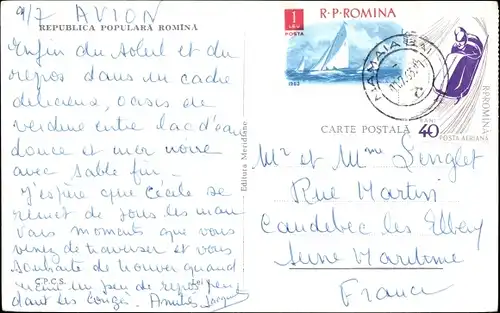 9/7 AVION
REPUBLICA POPULARĂ ROMÎNĂ
Enfin du soleil et du
repos dans un cadre
délicieux, oasis de
verdure entre lac d'eau
douce et mer noire
avec sable fin.
J'espère que Cécile se
remet de tous les mau
vais moments que vous
venez de traverser et vous
souhaite de trouver quand
même un peu de repos pen
dant les congés. Amitiés Jacques
C.P.C.S.
Lei
Editura Meridiane
1
LEU
POSTA
R·P·ROMINA
1962
MAMAIA
R.P.ROMINA
40
BANI
POSTA AERIANA
CARTE POŞTALĂ
Mr et Mme Linglet
Rue Martin
Caudebec les Elbeuf
Seine Maritime
France